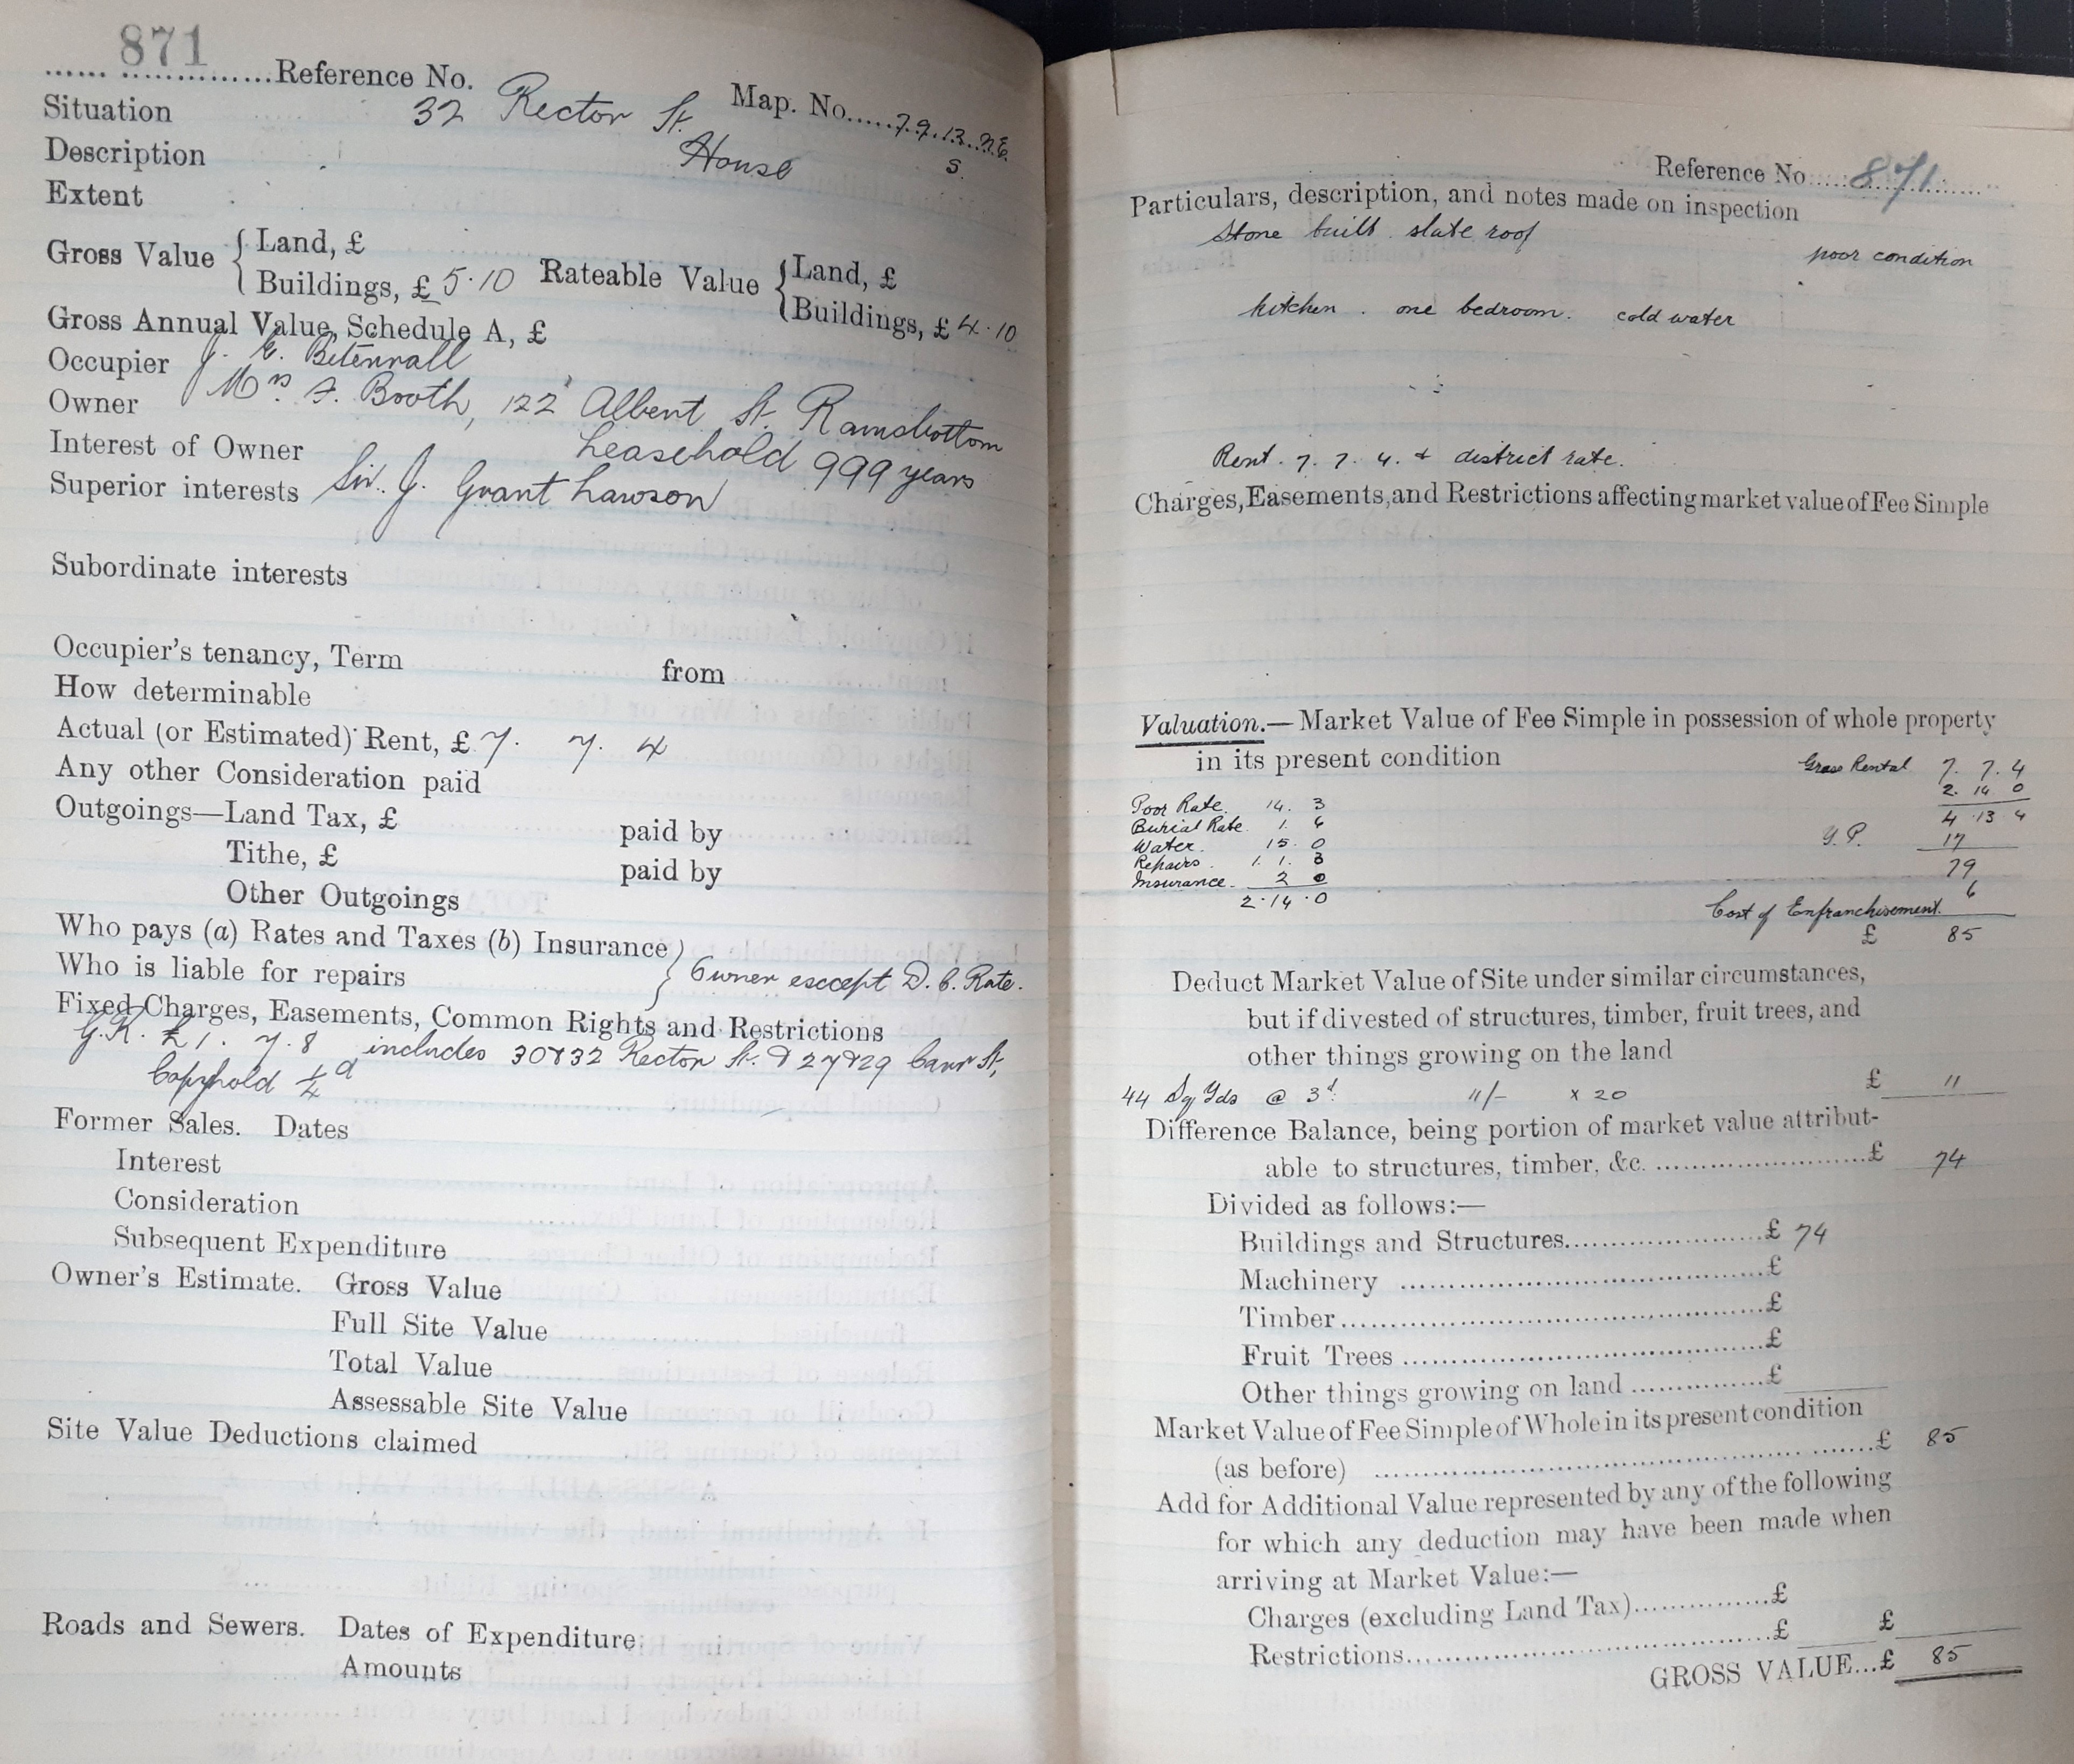 871
Reference No. Map. No. 79.13.N.E.
Situation 32 Rector St. S.
Description House
Extent
Gross Value { Land, £
Buildings, £ 5.10 Rateable Value { Land, £
Buildings, £ 4.10
Gross Annual Value, Schedule A, £
Occupier J. E.
Owner Mrs. F. Booth, 122 Albert St. Ramsbottom
Interest of Owner Leasehold 999 years
Superior interests Sir. J. Grant Lawson
Subordinate interests
Occupier's tenancy, Term from
How determinable
Actual (or Estimated) Rent, £ 7. 7. 4
Any other Consideration paid
Outgoings—Land Tax, £ paid by
Tithe, £ paid by
Other Outgoings
Who pays (a) Rates and Taxes (b) Insurance }
Who is liable for repairs } Owner except D. C. Rate.
Fixed Charges, Easements, Common Rights and Restrictions
G.R. £1. 7. 8 includes 30 & 32 Rector St. & 27 & 29 Carr St,
Copyhold ¼d
Former Sales. Dates
Interest
Consideration
Subsequent Expenditure
Owner's Estimate. Gross Value
Full Site Value
Total Value
Assessable Site Value
Site Value Deductions claimed
Roads and Sewers. Dates of Expenditure
Amounts
Reference No. 871
Particulars, description, and notes made on inspection
Stone built. slate roof
poor condition
kitchen. one bedroom. cold water
Rent. 7. 7. 4. + district rate.
Charges, Easements, and Restrictions affecting market value of Fee Simple
Valuation.—Market Value of Fee Simple in possession of whole property
in its present condition Gross Rental 7. 7. 4
2. 14 0
Poor Rate. 14. 3 4 13 4
Burial Rate 1. 6 Y.P. 17
Water. 15. 0
Repairs. 1. 1. 3 79
Insurance. 2 0 6
2.14.0 Cost of Enfranchisement.
£ 85
Deduct Market Value of Site under similar circumstances,
but if divested of structures, timber, fruit trees, and
other things growing on the land
44 Sq Yds @ 3d. 11/- x 20 £ 11
Difference Balance, being portion of market value attribut-
able to structures, timber, &c. £ 74
Divided as follows:—
Buildings and Structures £ 74
Machinery £
Timber £
Fruit Trees £
Other things growing on land £
Market Value of Fee Simple of Whole in its present condition
(as before) £ 85
Add for Additional Value represented by any of the following
for which any deduction may have been made when
arriving at Market Value:—
Charges (excluding Land Tax) £
Restrictions £ £
GROSS VALUE...£ 85